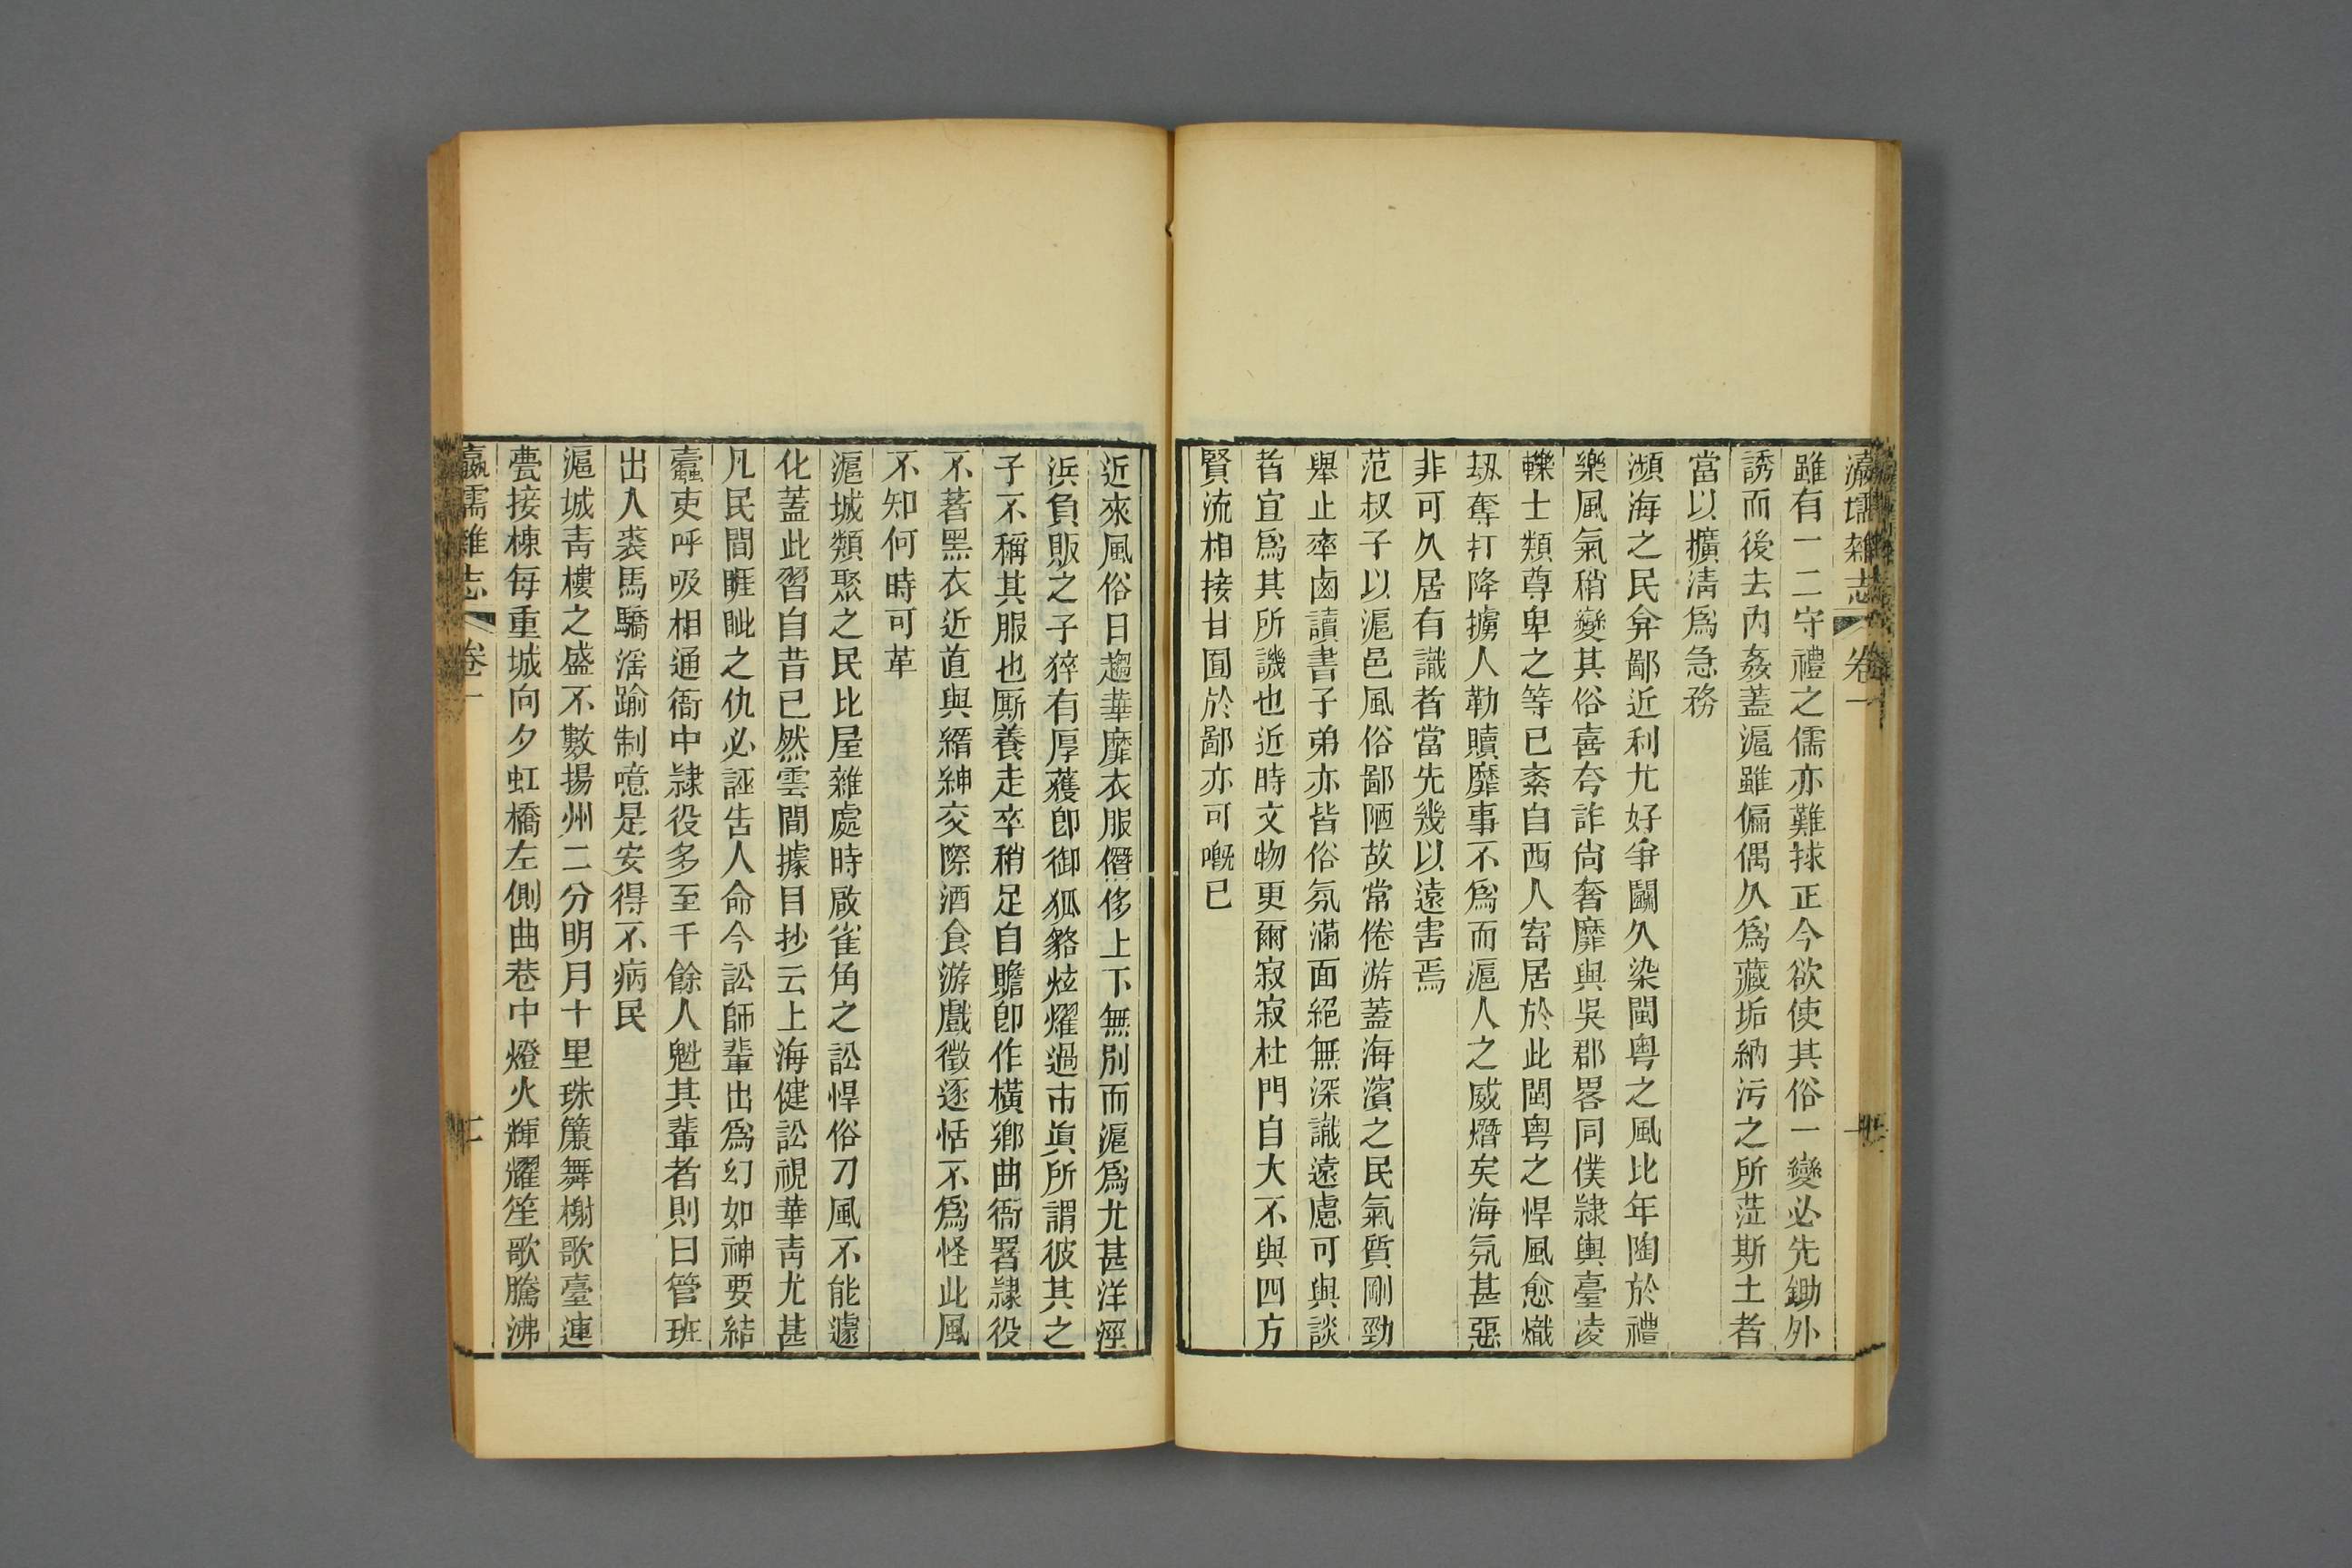 瀛壖雜志 卷一
雖有一二守禮之儒亦難捄正今欲使其俗一變必先鋤外
誘而後去內姦蓋滬雖偏偶久爲藏垢納污之所蒞斯土者
當以擴淸爲急務
瀕海之民弇鄙近利尤好爭鬬久染閩粤之風比年陶於禮
樂風氣稍變其俗喜夸詐尙奢靡與吳郡畧同僕隷輿臺凌
轢士類尊卑之等已紊自西人寄居於此閩粤之悍風愈熾
刼奪打降擄人勒贖靡事不爲而滬人之威熸矣海氛甚惡
非可久居有識者當先幾以遠害焉
范叔子以滬邑風俗鄙陋故常倦游蓋海濱之民氣質剛勁
舉止率鹵讀書子弟亦皆俗氛滿面絕無深識遠慮可與談
者宜爲其所譏也近時文物更爾寂寂杜門自大不與四方
賢流相接甘囿於鄙亦可嘅已
近來風俗日趨華靡衣服僭侈上下無別而滬爲尤甚洋涇
浜負販之子猝有厚蓰卽御狐貉炫燿過市眞所謂彼其之
子不稱其服也厮養走卒稍足自贍卽作橫鄉曲衙署隷役
不著黑衣近直與縉紳交際酒食游戲徵逐恬不爲怪此風
不知何時可革
滬城類聚之民比屋雜處時啟雀角之訟悍俗刀風不能遽
化蓋此習自昔已然雲間據目抄云上海健訟視華靑尤甚
凡民間睚眦之仇必誣告人命今訟師輩出爲幻如神要結
蠹吏呼吸相通衙中隷役多至千餘人魁其輩者則曰管班
出入裘馬驕滛踰制噫是安得不病民
滬城靑樓之盛不數揚州二分明月十里珠簾舞榭歌臺連
甍接棟每重城向夕虹橋左側曲巷中燈火輝耀笙歌騰沸
瀛壖雜志 卷一